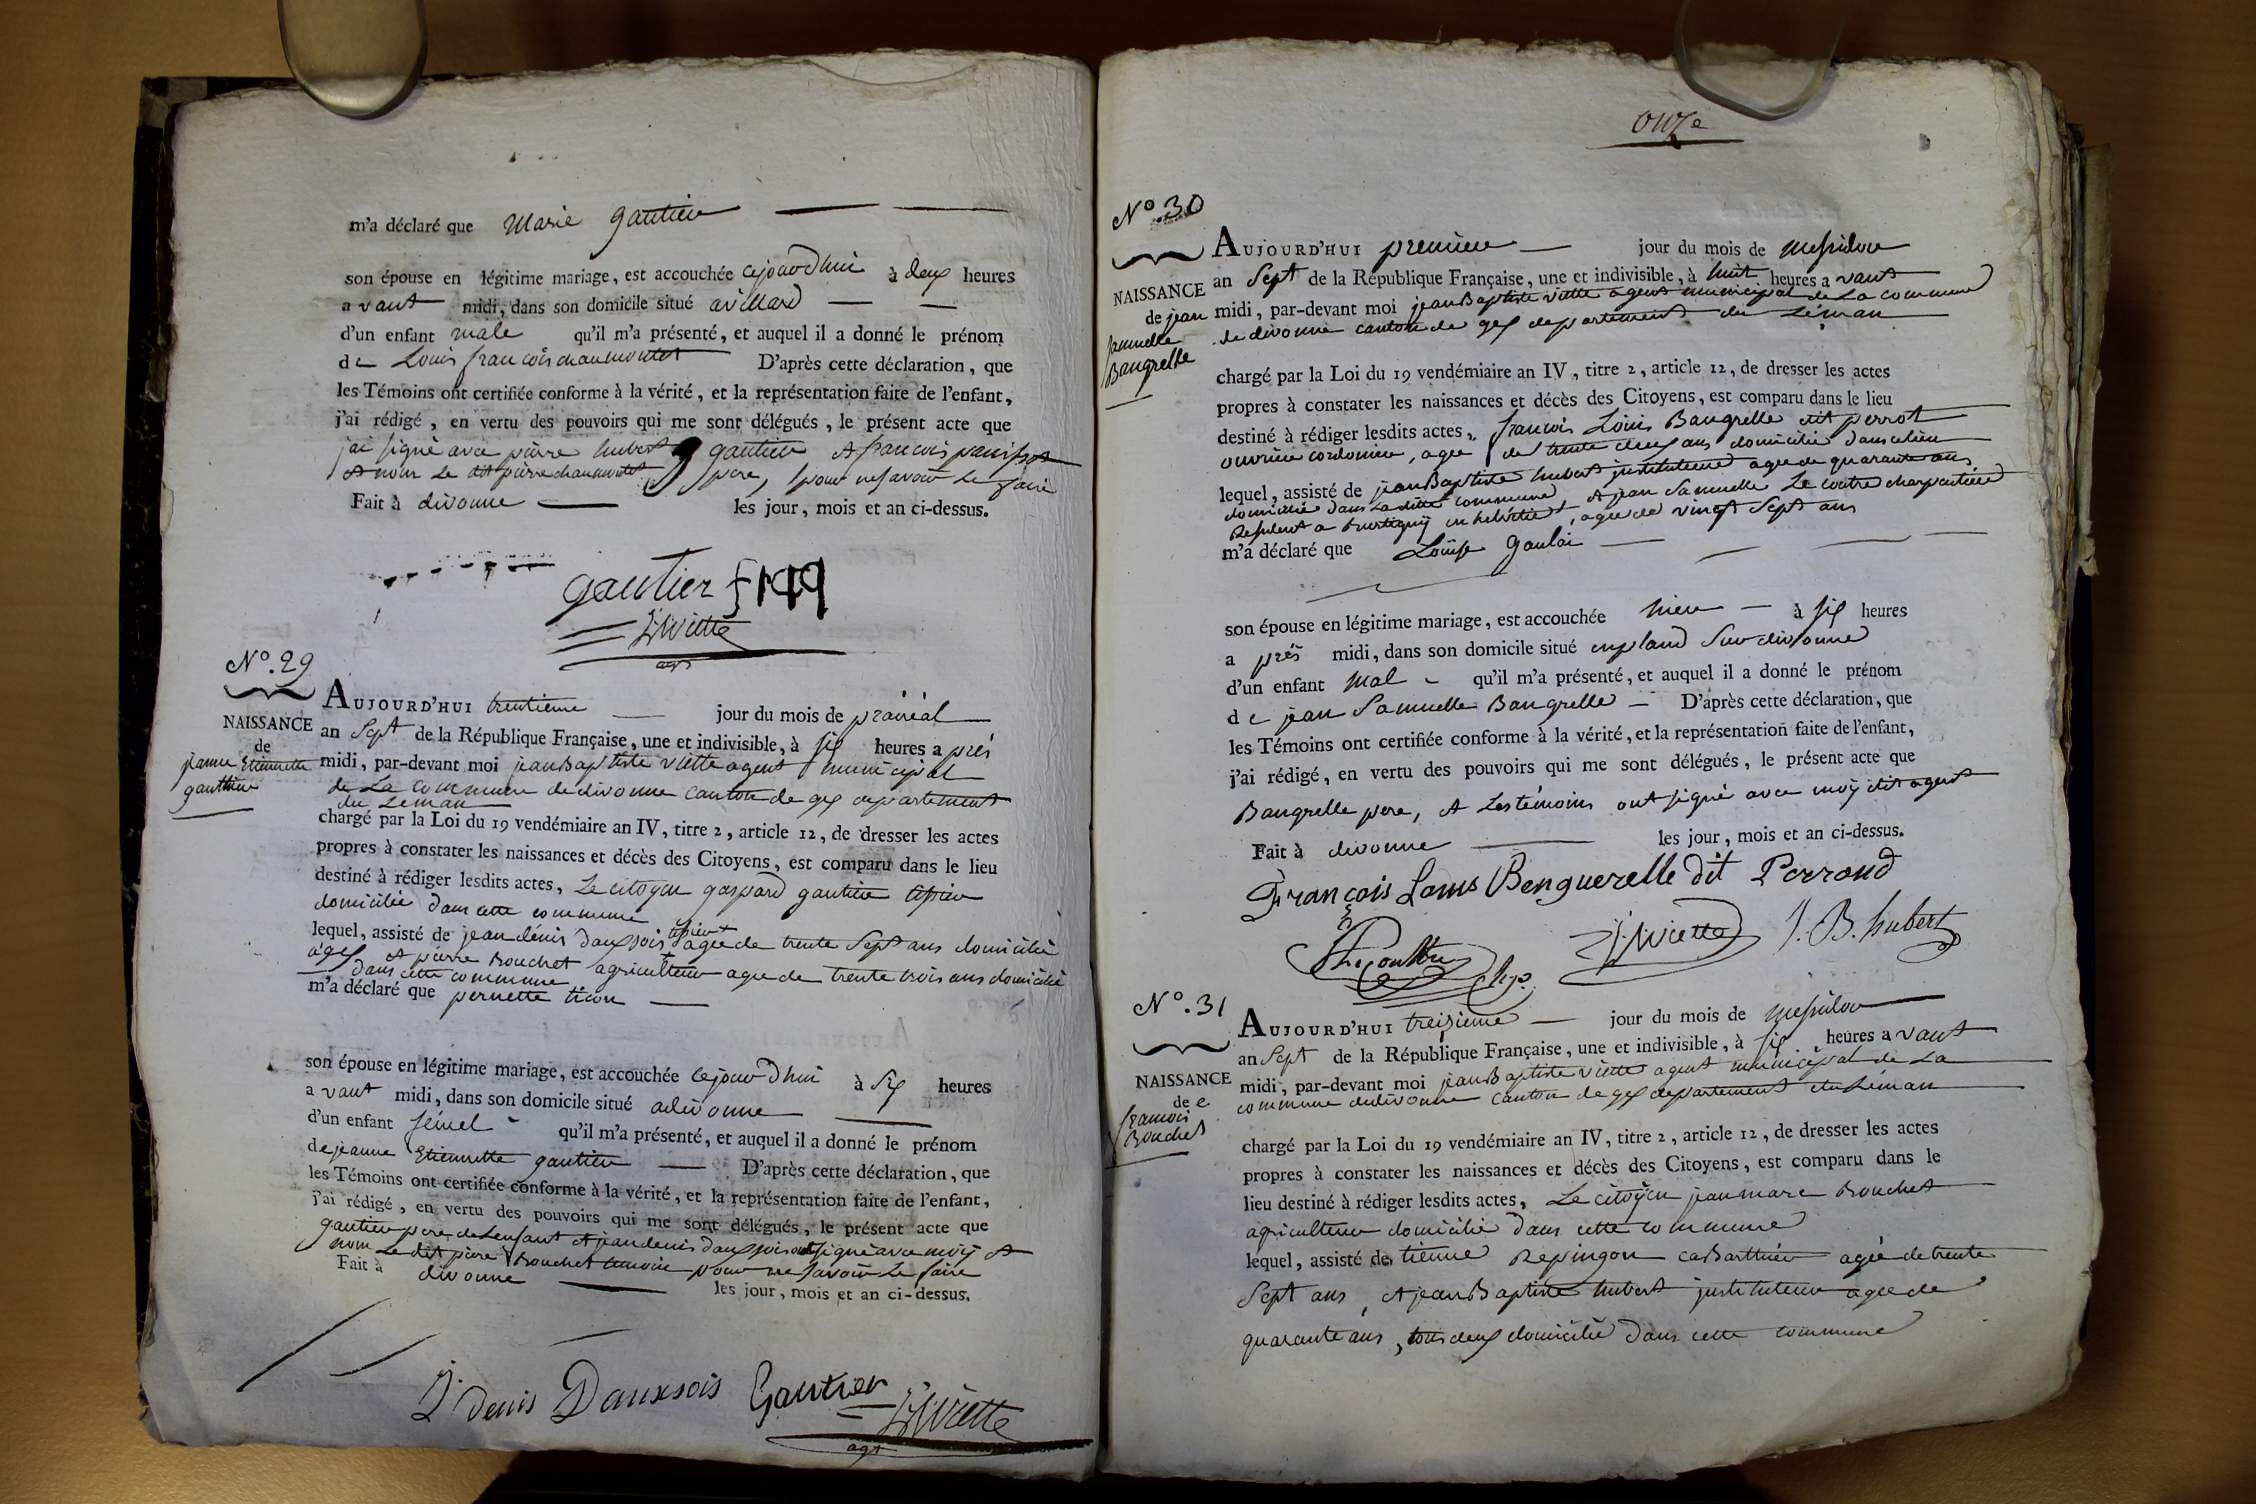 m'a déclaré que Marie gautier
son épouse en légitime mariage, est accouchée cejourd'hui à deux heures
avant midi, dans son domicile situé avillard
d'un enfant male qu'il m'a présenté, et auquel il a donné le prénom
de Louis françois chaumontet D'après cette déclaration, que
les Témoins ont certifiée conforme à la vérité, et la représentation faite de l'enfant,
j'ai rédigé, en vertu des pouvoirs qui me sont délégués, le présent acte que
jai signé avec pierre hubert gautier et francois panissot
et nom le dit pierre chaumontet pere, pour ne savoir le faire
Fait à divonne les jour, mois et an ci-dessus.
gautier
J Viette
agt
N°. 29
NAISSANCE
de
jeanne Etiennette
gautier
AUJOURD'HUI trentieme jour du mois de prairéal
an Sept de la République Française, une et indivisible, à six heures après
midi, par-devant moi jean Baptiste viette agent municipal
de La commune de divonne canton de gex departement
du Léman
chargé par la Loi du 19 vendémiaire an IV, titre 2, article 12, de dresser les actes
propres à constater les naissances et décès des Citoyens, est comparu dans le lieu
destiné à rédiger lesdits actes, Le citoyen gaspard gautier
domicilié dans cette commune
lequel, assisté de jean dénis dauxsois agée de trente Sept ans domicilié
a gex et pierre Bouchet agriculteur age de trente trois ans domicilié
dans cette commune
m'a déclaré que pernette
son épouse en légitime mariage, est accouchée cejourd'hui à six heures
avant midi, dans son domicile situé adivonne
d'un enfant fémel qu'il m'a présenté, et auquel il a donné le prénom
de jeanne Etiennette gautier D'après cette déclaration, que
les Témoins ont certifiée conforme à la vérité, et la représentation faite de l'enfant,
j'ai rédigé, en vertu des pouvoirs qui me sont délégués, le présent acte que
gautier pere de Lenfant et jean denis dauxsois ont signé avec moy et
nom Le dit pierre Bouchet temoin pour ne savoir Le faire
Fait à divonne les jour, mois et an ci-dessus.
J. denis Dauxsois Gautier J Viette
agt
onze
N° 30
NAISSANCE
de jean
samuelle
Bangrelle
AUJOURD'HUI premier jour du mois de messidor
an Sept de la République Française, une et indivisible, à huit heures avant
midi, par-devant moi jean Baptiste viette agent municipal de La commune
de divonne canton de gex departement du Léman
chargé par la Loi du 19 vendémiaire an IV, titre 2, article 12, de dresser les actes
propres à constater les naissances et décès des Citoyens, est comparu dans le lieu
destiné à rédiger lesdits actes, francois Louis Bangrelle dit perrot
ouvrier cordonier, agée de trente deux ans domicilié dans celieu
lequel, assisté de jean Baptiste hubert instituteur agee de quarante ans
domicilié dans La ditte commune, et jean Samuelle Le coutre charpantiée
Resident a burtigny en helvétie, agee de vingt Sept ans
m'a déclaré que Louise gaulai
son épouse en légitime mariage, est accouchée hier à six heures
après midi, dans son domicile situé en pland Sur divonne
d'un enfant mal qu'il m'a présenté, et auquel il a donné le prénom
de jean Samuelle Bangrelle D'après cette déclaration, que
les Témoins ont certifiée conforme à la vérité, et la représentation faite de l'enfant,
j'ai rédigé, en vertu des pouvoirs qui me sont délégués, le présent acte que
Bangrelle pere, et Les témoins ont signé avec moy dit agent
Fait à divonne les jour, mois et an ci-dessus.
François Louis Benguerelle dit Perroud
J Viette J. B. hubert
N°. 31
NAISSANCE
de
francois
Bouchet
AUJOURD'HUI treizieme jour du mois de messidor
an Sept de la République Française, une et indivisible, à six heures avant
midi, par-devant moi jean Baptiste viette agent municipal de La
commune de divonne canton de gex departement du Léman
chargé par la Loi du 19 vendémiaire an IV, titre 2, article 12, de dresser les actes
propres à constater les naissances et décès des Citoyens, est comparu dans le
lieu destiné à rédiger lesdits actes, Le citoyen jean marc Bouchet
agriculteur domicilié dans cette commune
lequel, assisté de tienne Repingon cabarttier agée de trente
Sept ans, et jean Baptiste hubert instituteur agee de
quarante ans, tous deux domicilié dans cette commune